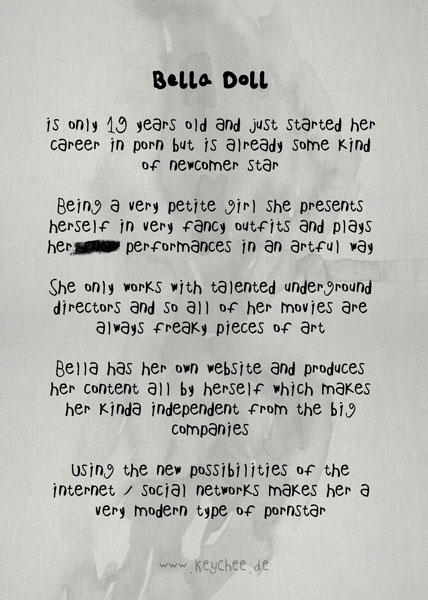 Bella Doll
is only 19 years old and just started her
career in porn but is already some kind
of newcomer star
Being a very petite girl she presents
herself in very fancy outfits and plays
her performances in an artful way
She only works with talented underground
directors and so all of her movies are
always freaky pieces of art
Bella has her own website and produces
her content all by herself which makes
her kinda independent from the big
companies
Using the new possibilities of the
internet / social networks makes her a
very modern type of pornstar
www.keychee.de